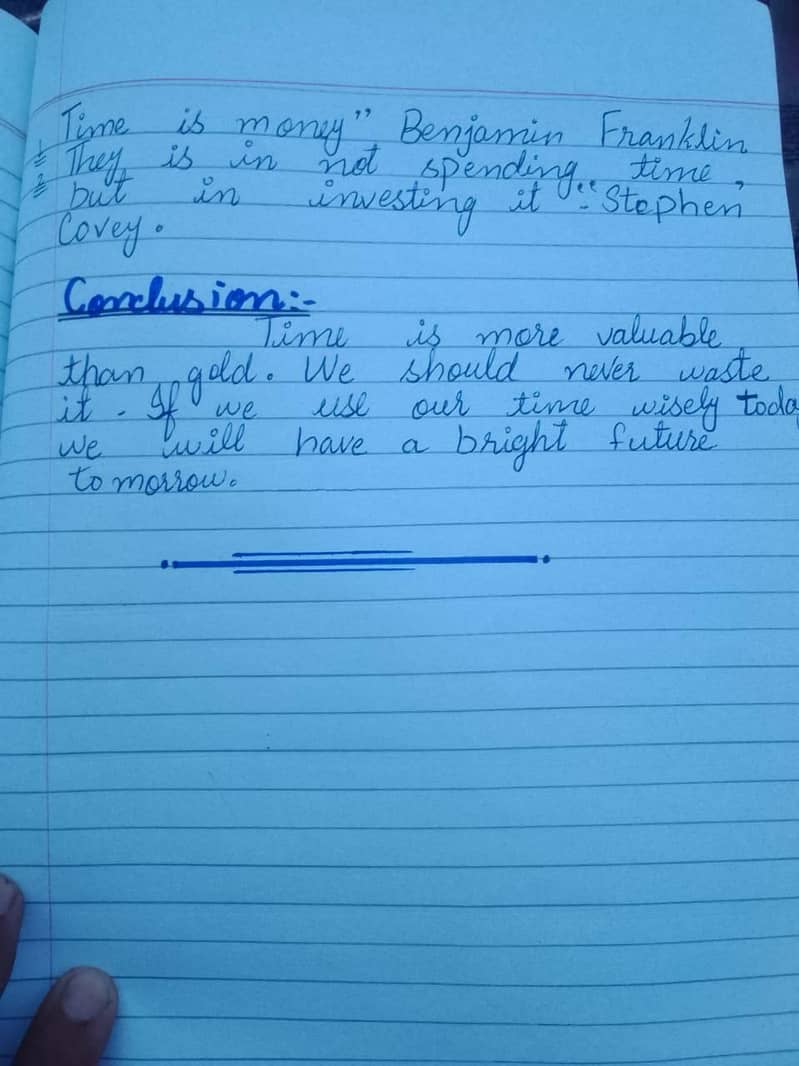 Time is money" Benjamin Franklin
1 They is in not spending time,
2 but in investing it "- Stephen
Covey.
Conclusion:-
Time is more valuable
than gold. We should never waste
it. If we use our time wisely toda
we will have a bright future
tomorrow.